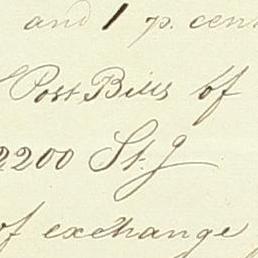 and 1 p. cen
Post Bills of
2200 St. g
of exchange